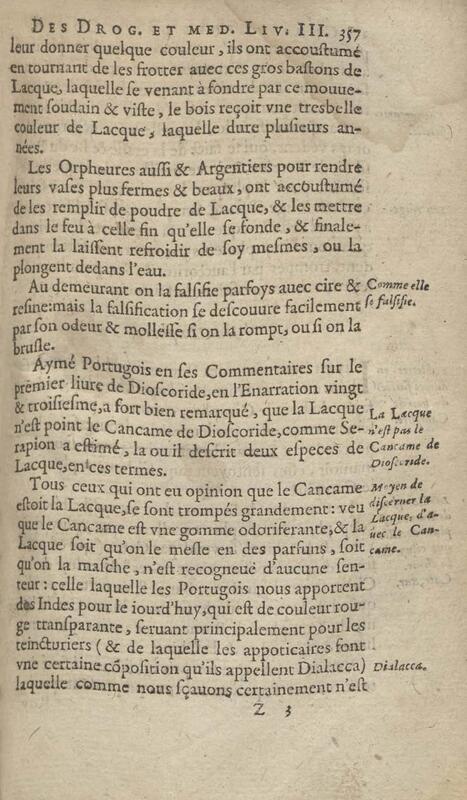 DES DROG. ET MED. LIV. III. 357
leur donner quelque couleur, ils ont accoustumé
en tournant de les frotter auec ces gros bastons de
Lacque, laquelle se venant à fondre par ce mouue-
ment soudain & viste, le bois reçoit vne tresbelle
couleur de Lacque, laquelle dure plusieurs an-
nées.
Les Orpheures aussi & Argentiers pour rendre
leurs vases plus fermes & beaux, ont accoustumé
de les remplir de poudre de Lacque, & les mettre
dans le feu à celle fin qu'elle se fonde, & finale-
ment la laissent refroidir de soy mesmes, ou la
plongent dedans l'eau.
Au demeurant on la falsifie parfoys auec cire &
resine: mais la falsification se descouure facilement
par son odeur & mollesse si on la rompt, ou si on la
brusle.
Comme elle
se falsifie.
Aymé Portugois en ses Commentaires sur le
premier liure de Dioscoride, en l'Enarration vingt
& troisiesme, a fort bien remarqué, que la Lacque
n'est point le Cancame de Dioscoride, comme Se-
rapion a estimé, la ou il descrit deux especes de
Lacque, en ces termes.
La Lacque
n'est pas le
Cancame de
Dioscoride.
Tous ceux qui ont eu opinion que le Cancame
estoit la Lacque, se sont trompés grandement: veu
que le Cancame est vne gomme odoriferante, & la
Lacque soit qu'on le mesle en des parfuns, soit
qu'on la masche, n'est recogneuë d'aucune sen-
teur: celle laquelle les Portugois nous apportent
des Indes pour le iourd'huy, qui est de couleur rou-
ge transparante, seruant principalement pour les
teincturiers (& de laquelle les appoticaires font
vne certaine cõposition qu'ils appellent Dialacca)
laquelle comme nous sçauons certainement n'est
Moyen de
discerner la
Lacque, d'a-
uec le Can-
came.
Dialacca.
Z 3